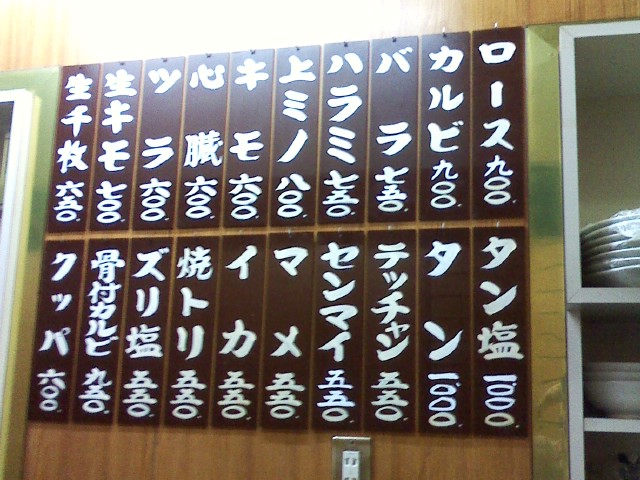 ロース 九〇〇
カルビ 九〇〇
バラ 七五〇
ハラミ 七五〇
上ミノ 八〇〇
キモ 六〇〇
心臓 六〇〇
ツラ 六〇〇
生キモ 七〇〇
生千枚 六五〇
タン塩 一、〇〇〇
タン 一、〇〇〇
テッチャン 五五〇
センマイ 五五〇
マメ 五五〇
イカ 五五〇
焼トリ 五五〇
ズリ塩 五五〇
骨付カルビ 九五〇
クッパ 六〇〇